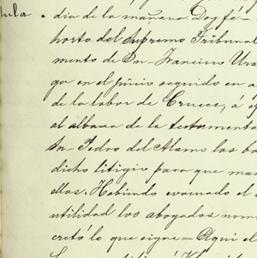 dula. dia de la mañana Doy fé =
horto del Supremo Tribunal
mento de Dn Francisco Ura
go en el juicio seguido en a
de la labor de Cruces, a
al albacea de la testamenta
Dn Pedro del Alamo las ba
dicho litigio para que ma
ellos. Habiendo evacuado el
utilidad los abogados nom
cretó lo que sigue = Aqui el